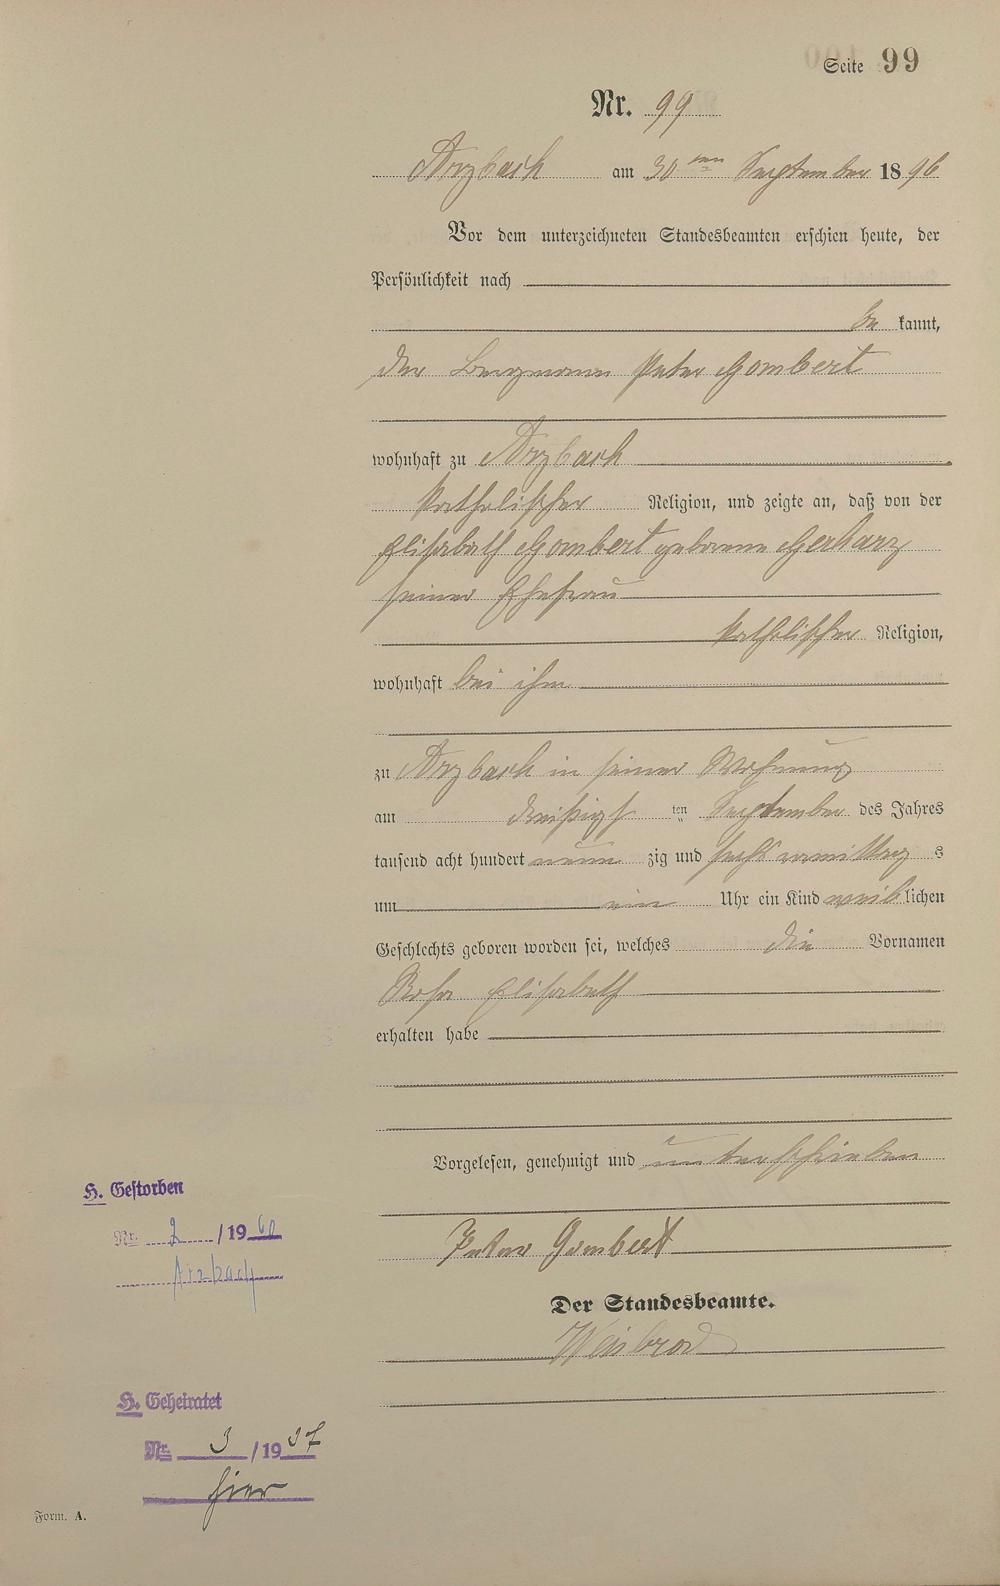 Seite 99
Nr. 99
Arzbach am 30ten September 1896
Vor dem unterzeichneten Standesbeamten erschien heute, der
Persönlichkeit nach
be kannt,
der Bergmann Peter Gombert
wohnhaft zu Arzbach
katholischer Religion, und zeigte an, daß von der
Elisabeth Gombert geborene Gerharz
seiner Ehefrau
katholischer Religion,
wohnhaft bei ihm
zu Arzbach in seiner Wohnung
am dreißigsten September des Jahres
tausend acht hundert neun zig und sechs vormittags
um ein Uhr ein Kind weiblichen
Geschlechts geboren worden sei, welches die Vornamen
Rosa Elisabeth
erhalten habe
Vorgelesen, genehmigt und unterschrieben
Peter Gombert
Der Standesbeamte.
Weisbrod
H. Gestorben
Nr. 2 /1960
Arzbach
H. Geheiratet
Nr. 3 /1937
hier
Form. A.